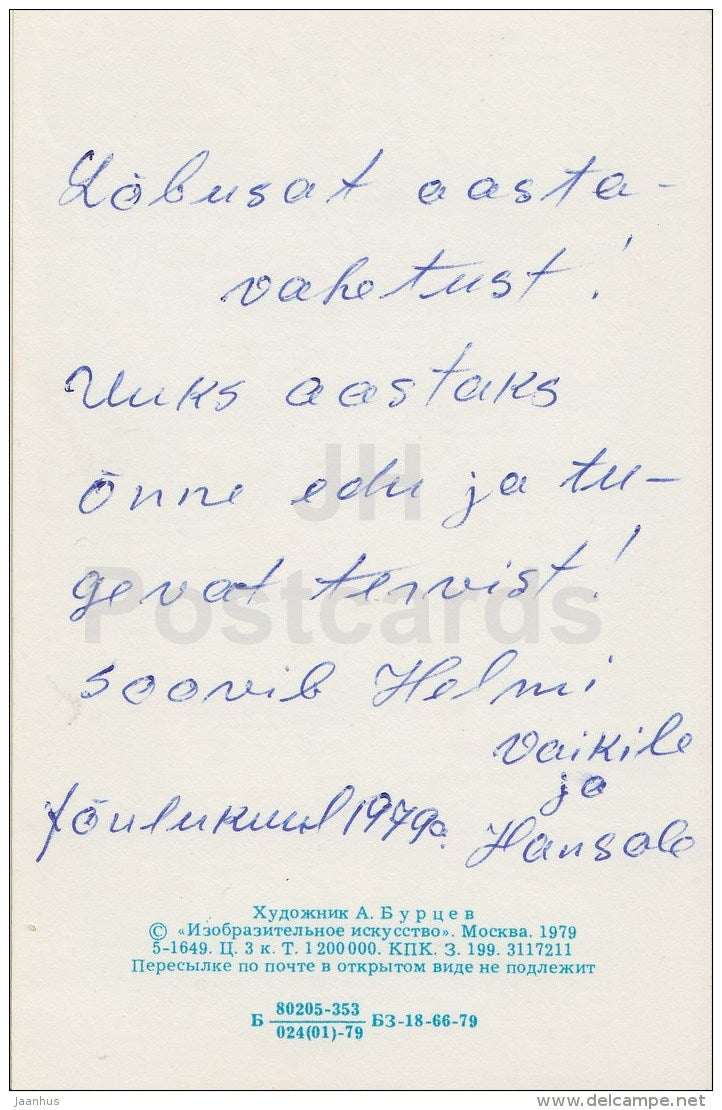 Lõbusat aasta-
vahetust!
Uuks aastaks
õnne edu ja tu-
gevat tervist!
soovib Helmi
Vaikile
ja
Hansole
Jõulukuul 1979a.
JH
Postcards
Художник А. Бурцев
© «Изобразительное искусство». Москва. 1979
5-1649. Ц. 3 к. Т. 1 200 000. КПК. З. 199. 3117211
Пересылке по почте в открытом виде не подлежит
Б 80205-353 БЗ-18-66-79
024(01)-79
Jaanhus
www.delcampe.net